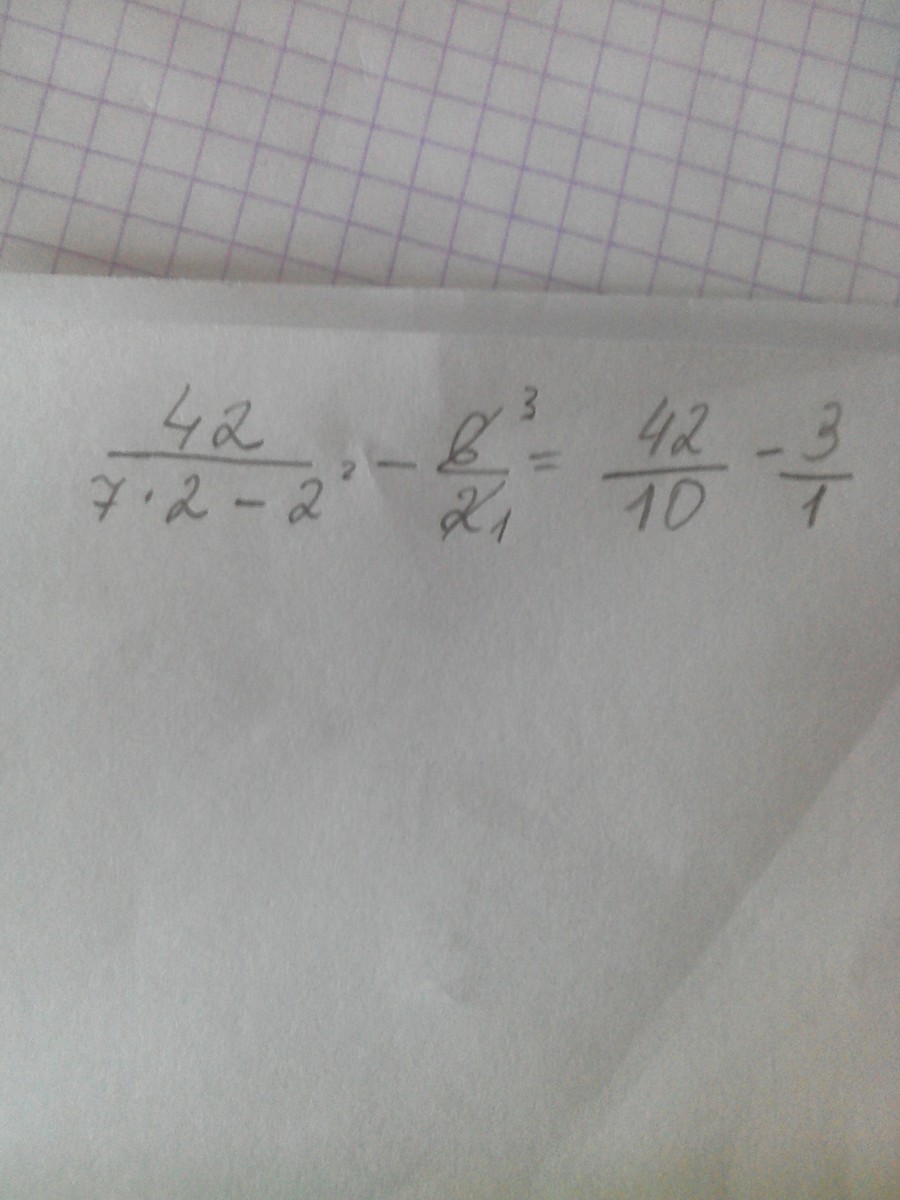 42/(7·2-2²) - 6/2 ³ ₁ = 42/10 - 3/1